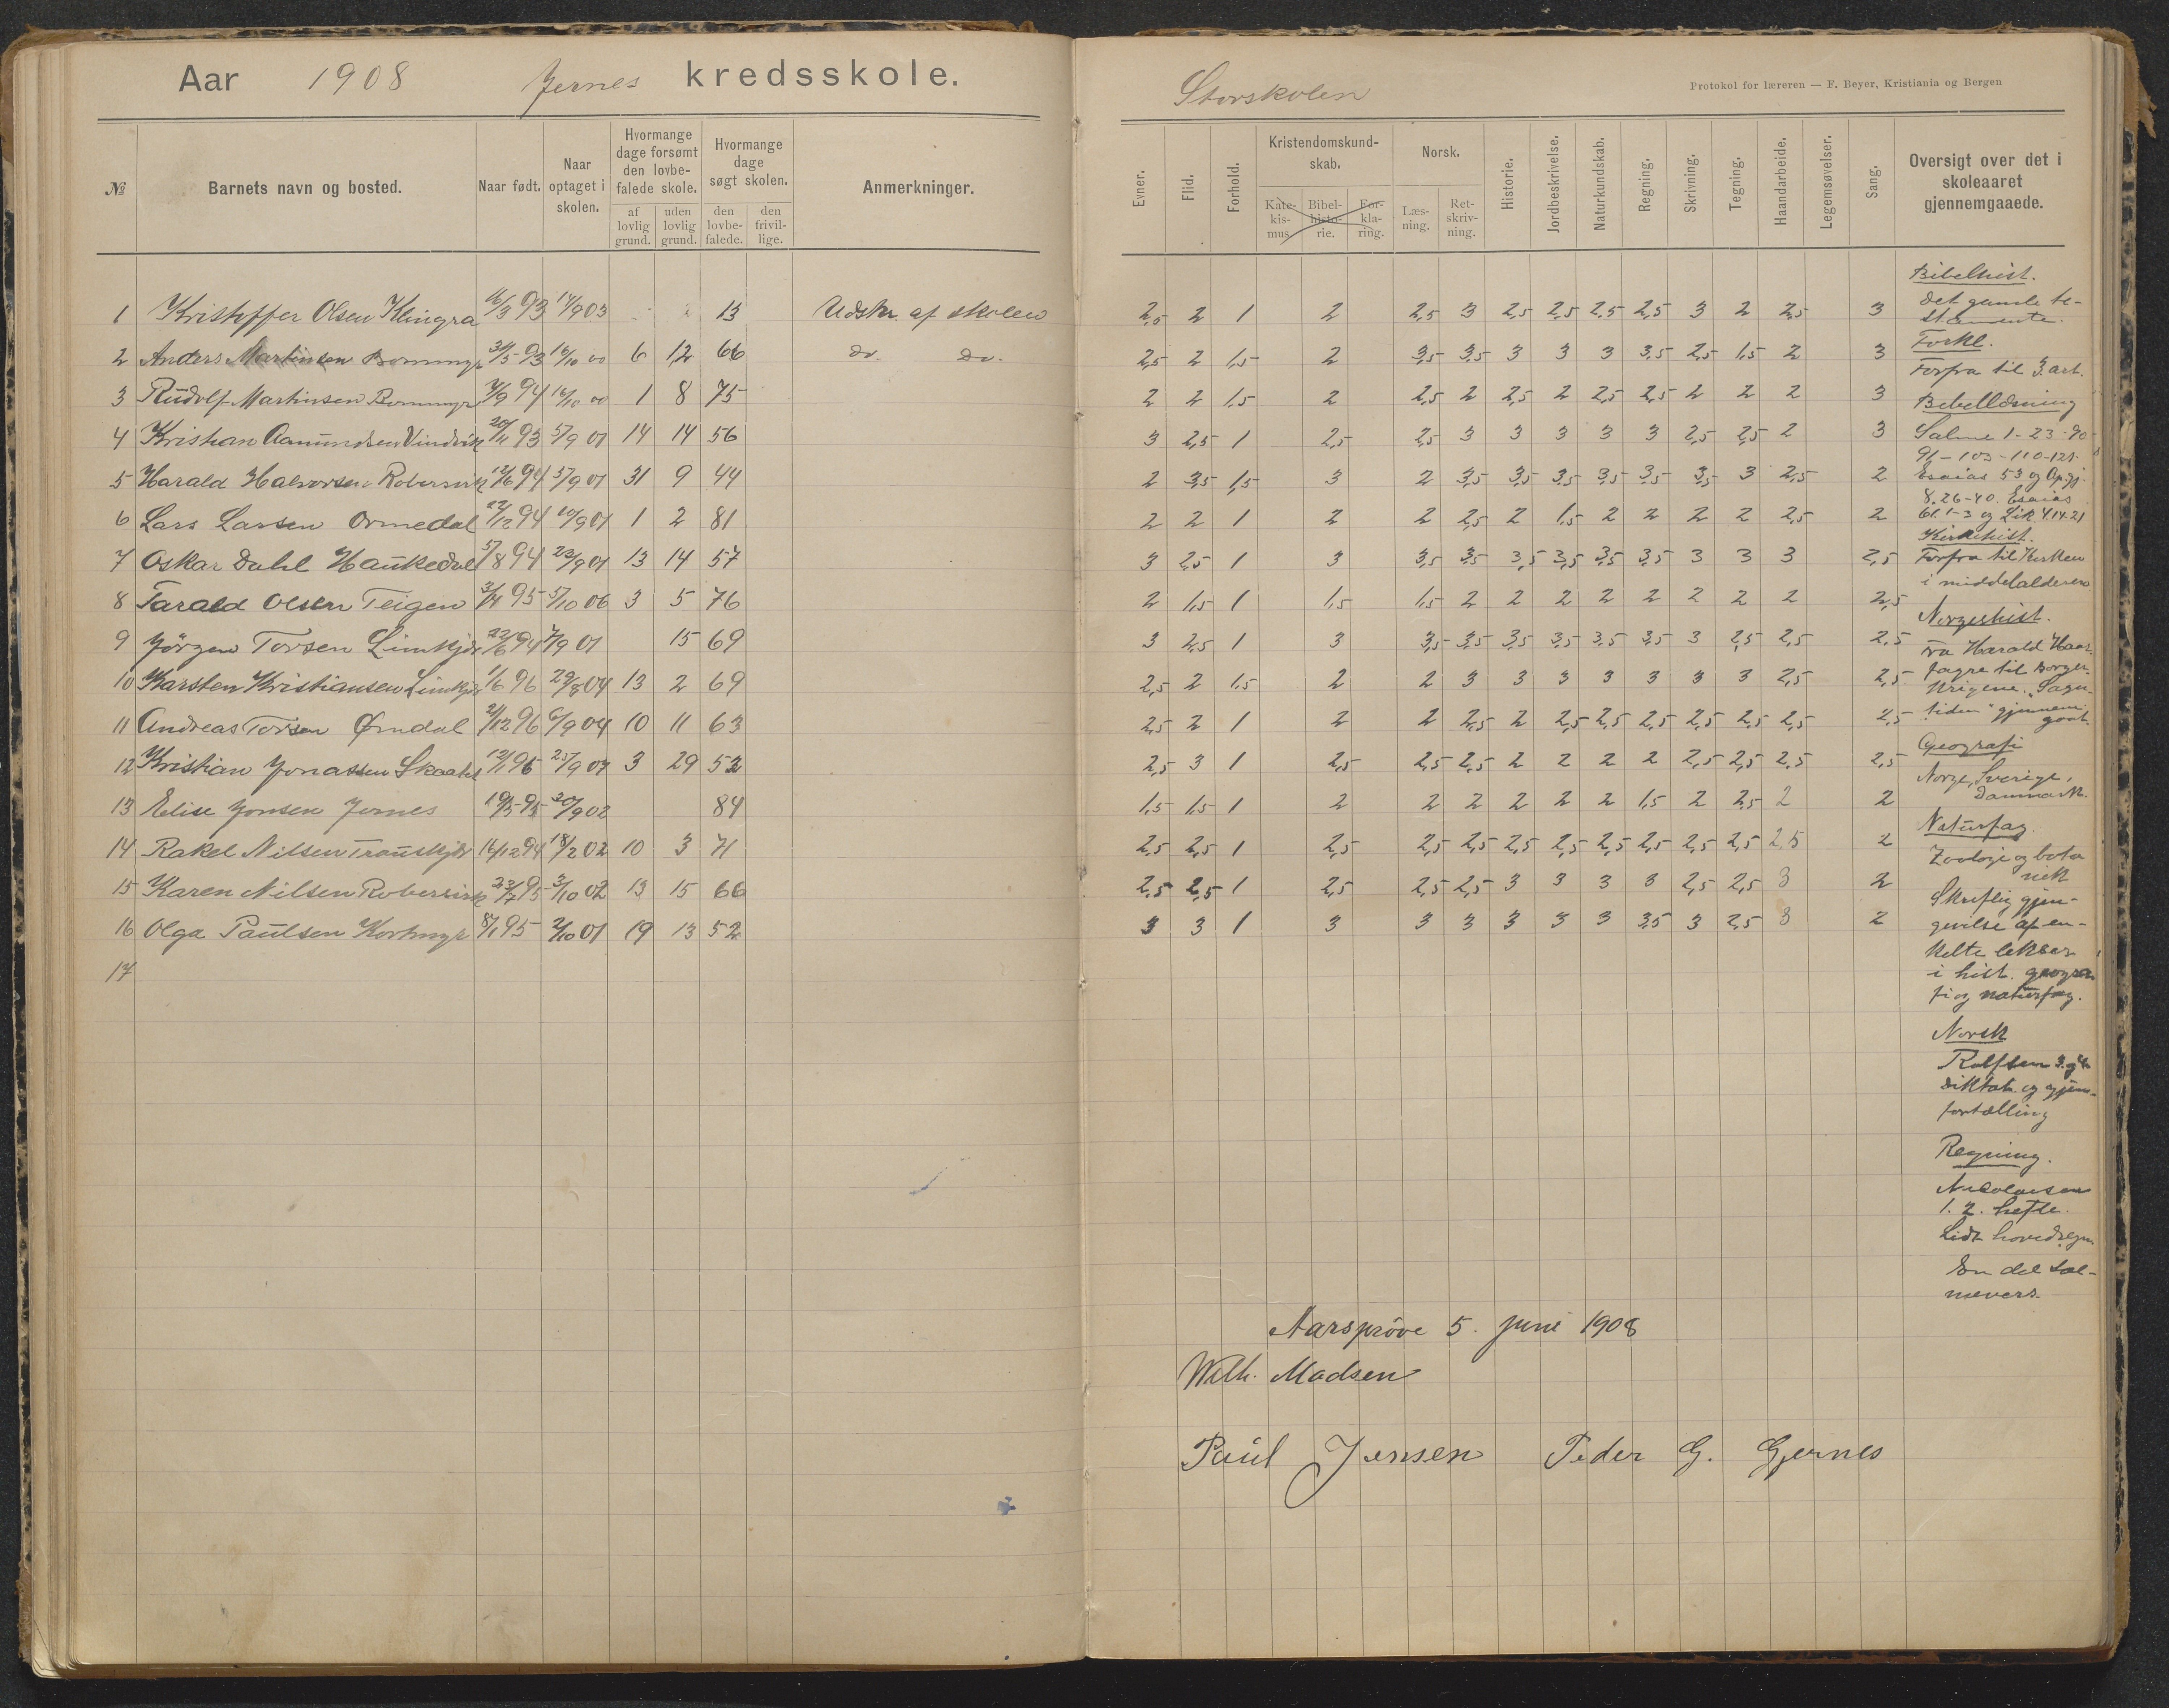 Aar 1908 Jernes kredsskole.
№ Barnets navn og bosted. Naar født. Naar optaget i skolen. Hvormange dage forsømt den lovbefalede skole. af lovlig grund. uden lovlig grund. Hvormange dage søgt skolen. den lovbefalede. den frivillige. Anmerkninger.
1 Kristoffer Olsen Klingra 16/3 93 14/9 03 13 Udskr. af skolen
2 Anders Martinsen 31/5 93 16/10 00 6 12 66 Do. Do.
3 Rudolf Martinsen 94 16/10 00 1 8 75
4 Kristian Aamundsen 20/11 93 5/9 01 14 14 56
5 Harald Halvorsen Robersvik 12/6 94 5/9 01 31 9 44
6 Lars Larsen Ormedal 22/12 94 10/9 01 1 2 81
7 Oskar Dahl Haukedal 5/8 94 23/9 01 13 14 57
8 Tarald Olsen Teigen 3/4 95 5/10 06 3 5 76
9 Jörgen Torsen Limkjær 22/6 94 7/9 01 15 69
10 Karsten Kristiansen Limkjær 1/6 96 29/8 04 13 2 69
11 Andreas Torsen Ørndal 21/12 96 6/9 04 10 11 63
12 Kristian Jonassen 12/1 96 25/9 03 3 29 52
13 Elise Jonsen Jernes 19/5 95 20/9 02 84
14 Rakel Nilsen Trauskjær 16/12 94 18/2 02 10 3 71
15 Karen Nilsen Robersvik 23/7 95 3/10 02 13 15 66
16 Olga Paulsen Kortmyr 8/1 95 2/10 01 19 13 52
17
Storskolen
Protokol for læreren — F. Beyer, Kristiania og Bergen
Evner. Flid. Forhold. Kristendomskundskab. Katekismus. Bibelhistorie. Forklaring. Norsk. Læsning. Retskrivning. Historie. Jordbeskrivelse. Naturkundskab. Regning. Skrivning. Tegning. Haandarbeide. Legemsøvelser. Sang. Oversigt over det i skoleaaret gjennemgaaede.
2,5 2 1 2 2,5 3 2,5 2,5 2,5 2,5 3 2 2,5 3
2,5 2 1,5 2 3,5 3,5 3 3 3 3,5 2,5 1,5 2 3
2 2 1,5 2 2,5 2 2,5 2 2,5 2,5 2 2 2 3
3 2,5 1 2,5 2,5 3 3 3 3 3 2,5 2,5 2 3
2 3,5 1,5 3 2 3,5 3,5 3,5 3,5 3,5 3,5 3 2,5 2
2 2 1 2 2 2,5 2 1,5 2 2 2 2 2,5 2
3 2,5 1 3 3,5 3,5 3,5 3,5 3,5 3,5 3 3 3 2,5
2 1,5 1 1,5 1,5 2 2 2 2 2 2 2 2 2,5
3 2,5 1 3 3,5 3,5 3,5 3,5 3,5 3,5 3 2,5 2,5 2,5
2,5 2 1,5 2 2 3 3 3 3 3 3 3 2,5 2,5
2,5 2 1 2 2 2,5 2 2,5 2,5 2,5 2,5 2,5 2,5 2,5
2,5 3 1 2,5 2,5 2,5 2 2 2 2 2,5 2,5 2,5 2,5
1,5 1,5 1 2 2 2 2 2 2 1,5 2 2,5 2 2
2,5 2,5 1 2,5 2,5 2,5 2,5 2,5 2,5 2,5 2,5 2,5 2,5 2
2,5 2,5 1 2,5 2,5 2,5 3 3 3 3 2,5 2,5 3 2
3 3 1 3 3 3 3 3 3 3,5 3 2,5 3 2
Bibelhist.
Det gamle te-
stamente.
Forkl.
Forfra til 3. art.
Bibellæsning
Salme 1-23-90-
91-103-110-121.
Esaias 53 og Ap.gj.
8,26-40. Esaias
61.1-3 og Luk 4.14-21
Kirkehist.
Forfra til Kirken
i middelalderen
Norgeshist.
Fra Harald Haar-
fagre til Borger-
krigene. "Sagn-
tiden" gjennem-
gaat.
Geografi
Norge, Sverige,
Danmark.
Naturfag.
Zoologi og bota
nik
Skriftlig gjen-
givelse af en-
kelte lekser
i hist. geogra-
fi og naturfag.
Norsk
Rolfsen 3. og 4.
Diktat og gjen-
fortælling
Regning.
Nicolaisen
1. 2. hefte.
Lidt hovedregn.
En del sal-
mevers.
Aarsprøve 5. juni 1908
Wilh. Madsen
Paul Jensen Peder G. Gjernes